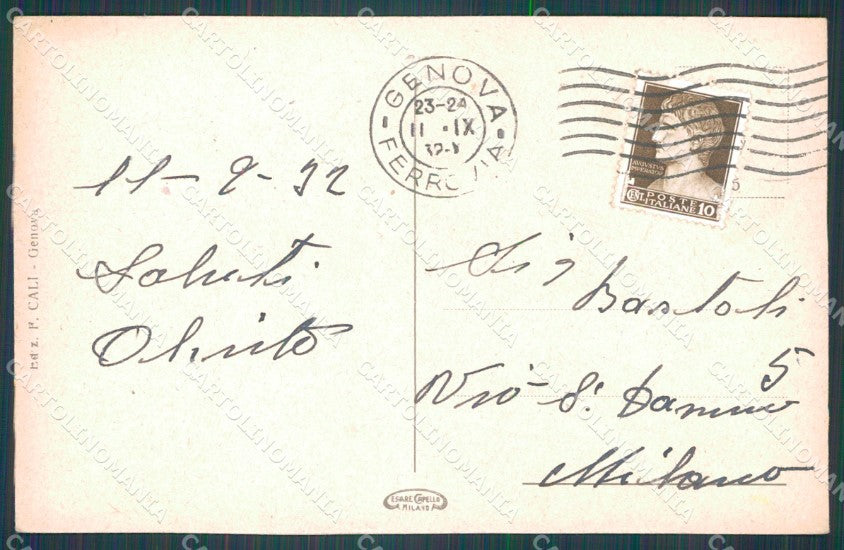 GENOVA
FERROVIA
23-24
11 • IX
32-X
AUGUSTUS
IMPERATOR
POSTE
ITALIANE
CENT. 10
11-9-32
Saluti
Sig
Bastoli
Via S. Damiano 5
Milano
Ediz. F. CALI - Genova
CESARE CAPELLO
MILANO
CARTOLINOMANIA